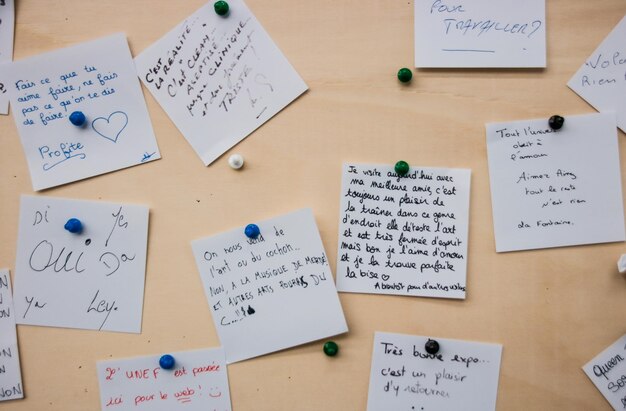 Fais ce que tu
aime faire, ne fais
pas ce qu'on te dis
de faire.
Profite
C'est LA
RÉALITÉ...
C'est CLEAN
ASEPTISÉ
CLINIQUE
TRISTE
POUR
TRAVAILLER?
Rien
Tout l'univers
obéit à
l'amour
Aimez Aimez
tout le reste
n'est rien
La Fontaine.
Je visite aujourd'hui avec
ma meilleure amie, c'est
toujours un plaisir de
la trainer dans ce genre
d'endroit elle déteste l'art
et est très fermée d'esprit
mais bon je l'aime d'amour
et je la trouve parfaite
la bise
A bientôt pour d'autres
Di Yes
Oui Da
Ya Ley.
On nous vend de
l'art ou du cochon...
NON, A LA MUSIQUE DE MERDE
ET AUTRES ARTS POURRIS DU
C...!!
NON
NON
2' UNEF est passée
ici pour le web! :)
Très bonne expo...
c'est un plaisir
d'y retourner
Queen